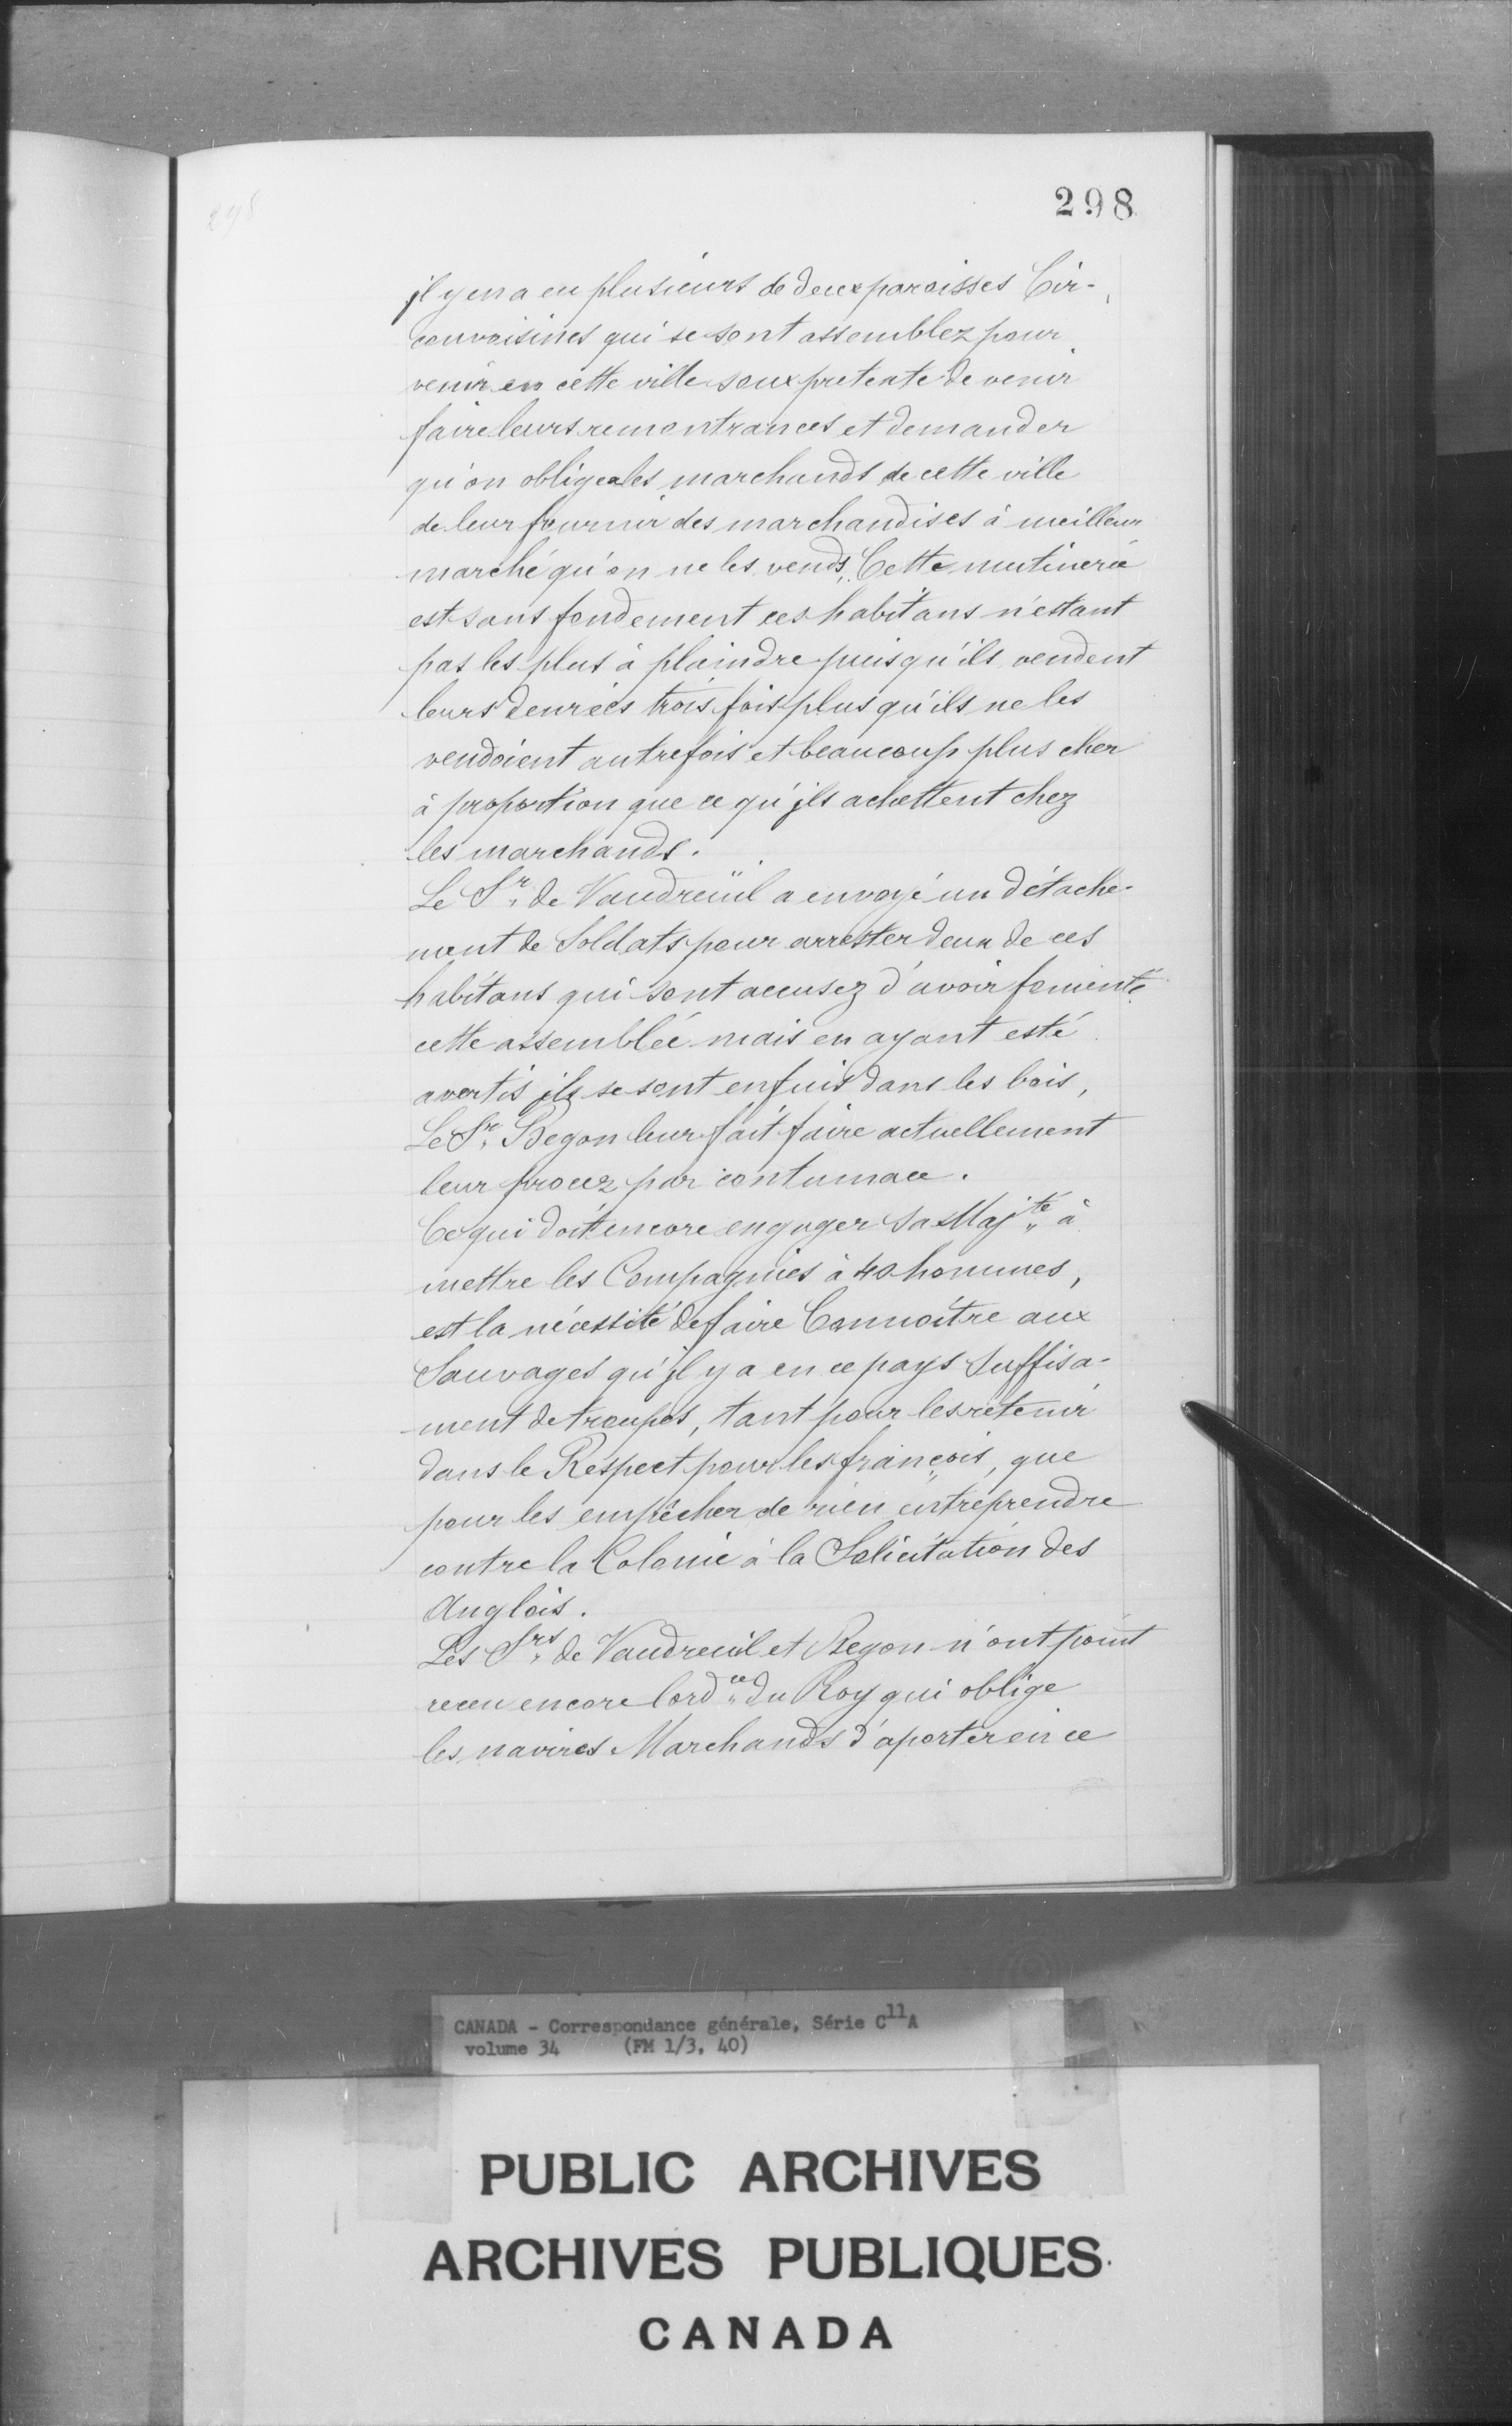 298
298
jl y en a eu plusieurs de deux paroisses Cir-
couvoisines qui se sont assemblez pour
venir en cette ville soux pretexte de venir
faire leurs remontrances et demander
qu'on obligea les marchands de cette ville
de leur fournir des marchandises à meilleur
marché qu'on ne les vends, Cette mutinerie
est sans fondement ces habitans n'estant
pas les plus à plaindre puisqu'ils vendent
leurs denrées trois fois plus qu'ils ne les
vendoient autrefois et beaucoup plus cher
à proportion que ce qu'jls achettent chez
les marchands.
Le Sr. de Vaudreüil a envoyé un détache-
ment de Soldats pour arrester deux de ces
habitans qui sont accusez d'avoir fomenté
cette assemblée mais en ayant esté
avertis jls se sont enfuis dans les bois,
Le Sr. Begon leur fait faire actuellement
leur procez par contumace.
Ce qui doit encore engager Sa Majté à
mettre les Compagnies à 40 hommes,
est la nécessité de faire Connoître aux
Sauvages qu'jl y a en ce pays Suffisa-
ment de troupes, tant pour les retenir
dans le Respect pour les françois, que
pour les empêcher de rien entreprendre
contre la Colonie à la Solicitation des
Anglois.
Les Srs. de Vaudreuil et Begon n'ont point
receu encore lordce du Roy qui oblige
les navires Marchands d'aporter en ce
CANADA - Correspondance générale, Série C11A
volume 34 (FM 1/3, 40)
PUBLIC ARCHIVES
ARCHIVES PUBLIQUES
CANADA